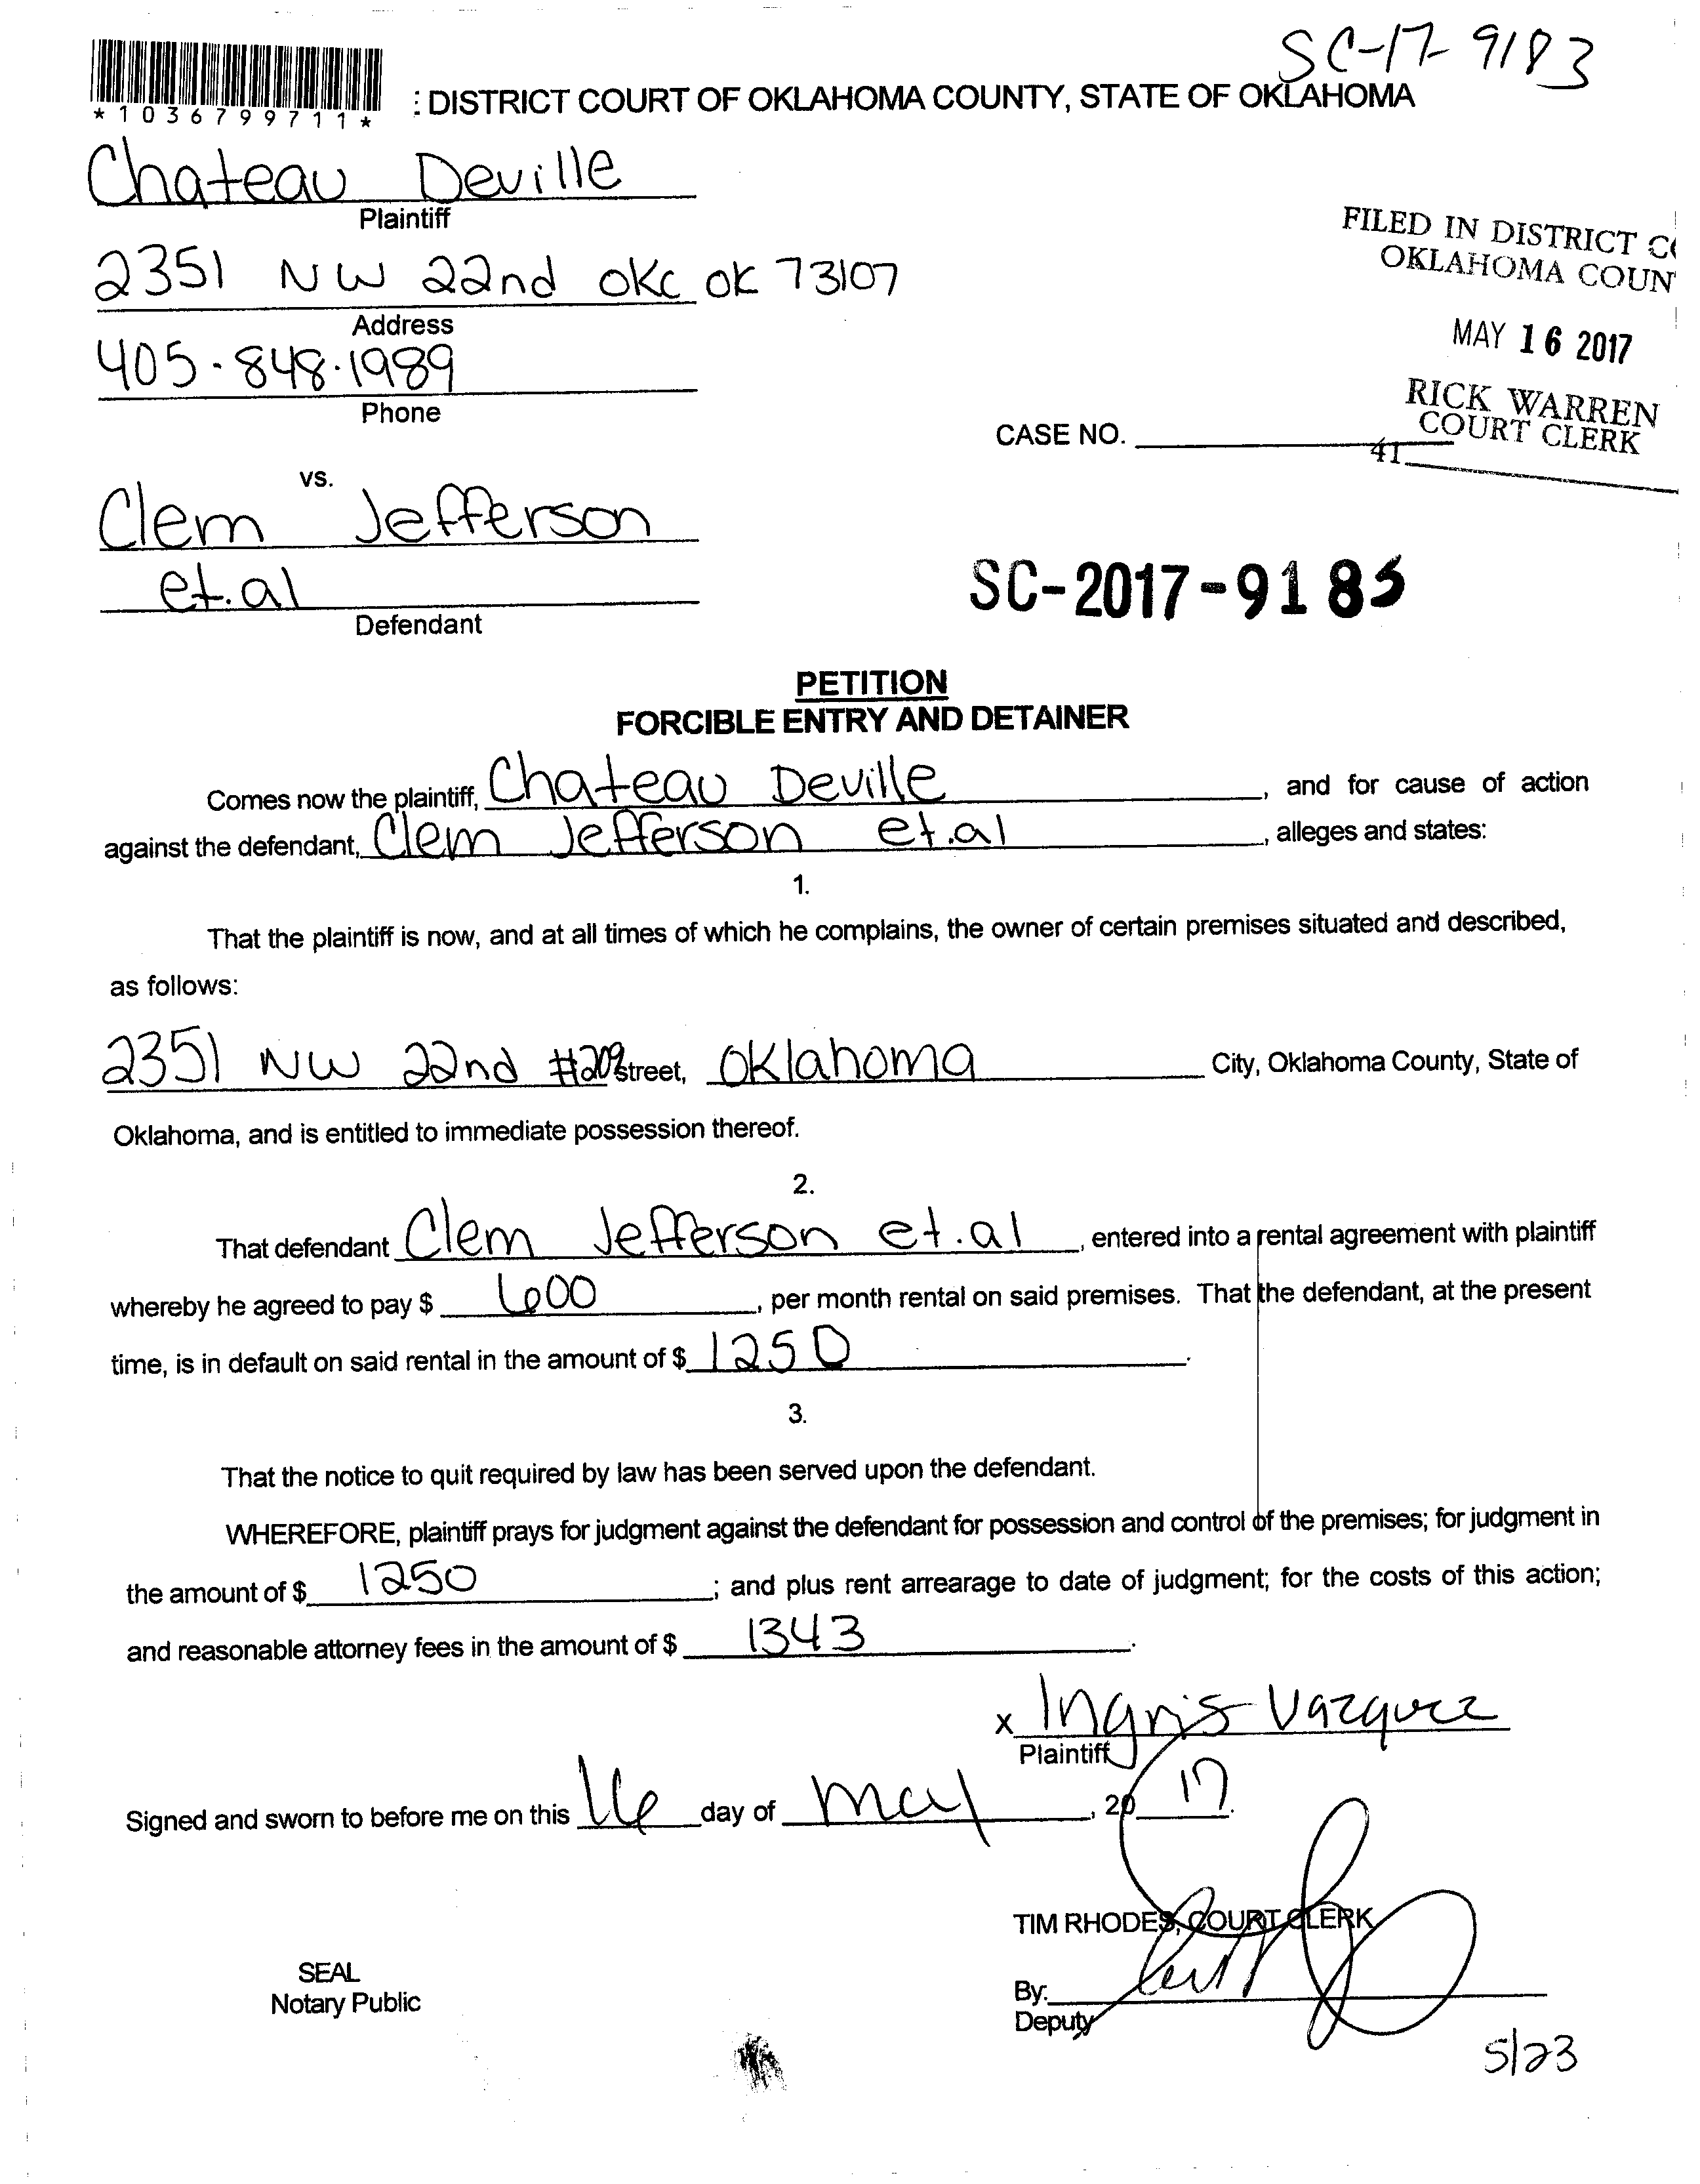 SC-17-9183
*1036799711*
: DISTRICT COURT OF OKLAHOMA COUNTY, STATE OF OKLAHOMA
Chateau Deville
Plaintiff
2351 NW 22nd OKC OK 73107
Address
405-848-1989
Phone
FILED IN DISTRICT C
OKLAHOMA COUN
MAY 16 2017
RICK WARREN
COURT CLERK
41
CASE NO.
vs.
Clem Jefferson
et.al
Defendant
SC-2017-9183
PETITION
FORCIBLE ENTRY AND DETAINER
Comes now the plaintiff, Chateau Deville, and for cause of action
against the defendant, Clem Jefferson et.al, alleges and states:
1.
That the plaintiff is now, and at all times of which he complains, the owner of certain premises situated and described,
as follows:
2351 NW 22nd #209 street, Oklahoma City, Oklahoma County, State of
Oklahoma, and is entitled to immediate possession thereof.
2.
That defendant Clem Jefferson et.al, entered into a rental agreement with plaintiff
whereby he agreed to pay $ 600, per month rental on said premises. That the defendant, at the present
time, is in default on said rental in the amount of $ 1250.
3.
That the notice to quit required by law has been served upon the defendant.
WHEREFORE, plaintiff prays for judgment against the defendant for possession and control of the premises; for judgment in
the amount of $ 1250; and plus rent arrearage to date of judgment; for the costs of this action;
and reasonable attorney fees in the amount of $ 1343.
x Ingris Vazquez
Plaintiff
Signed and sworn to before me on this 16 day of May, 20 17.
TIM RHODES, COURT CLERK
SEAL
Notary Public
By:
Deputy
5/23